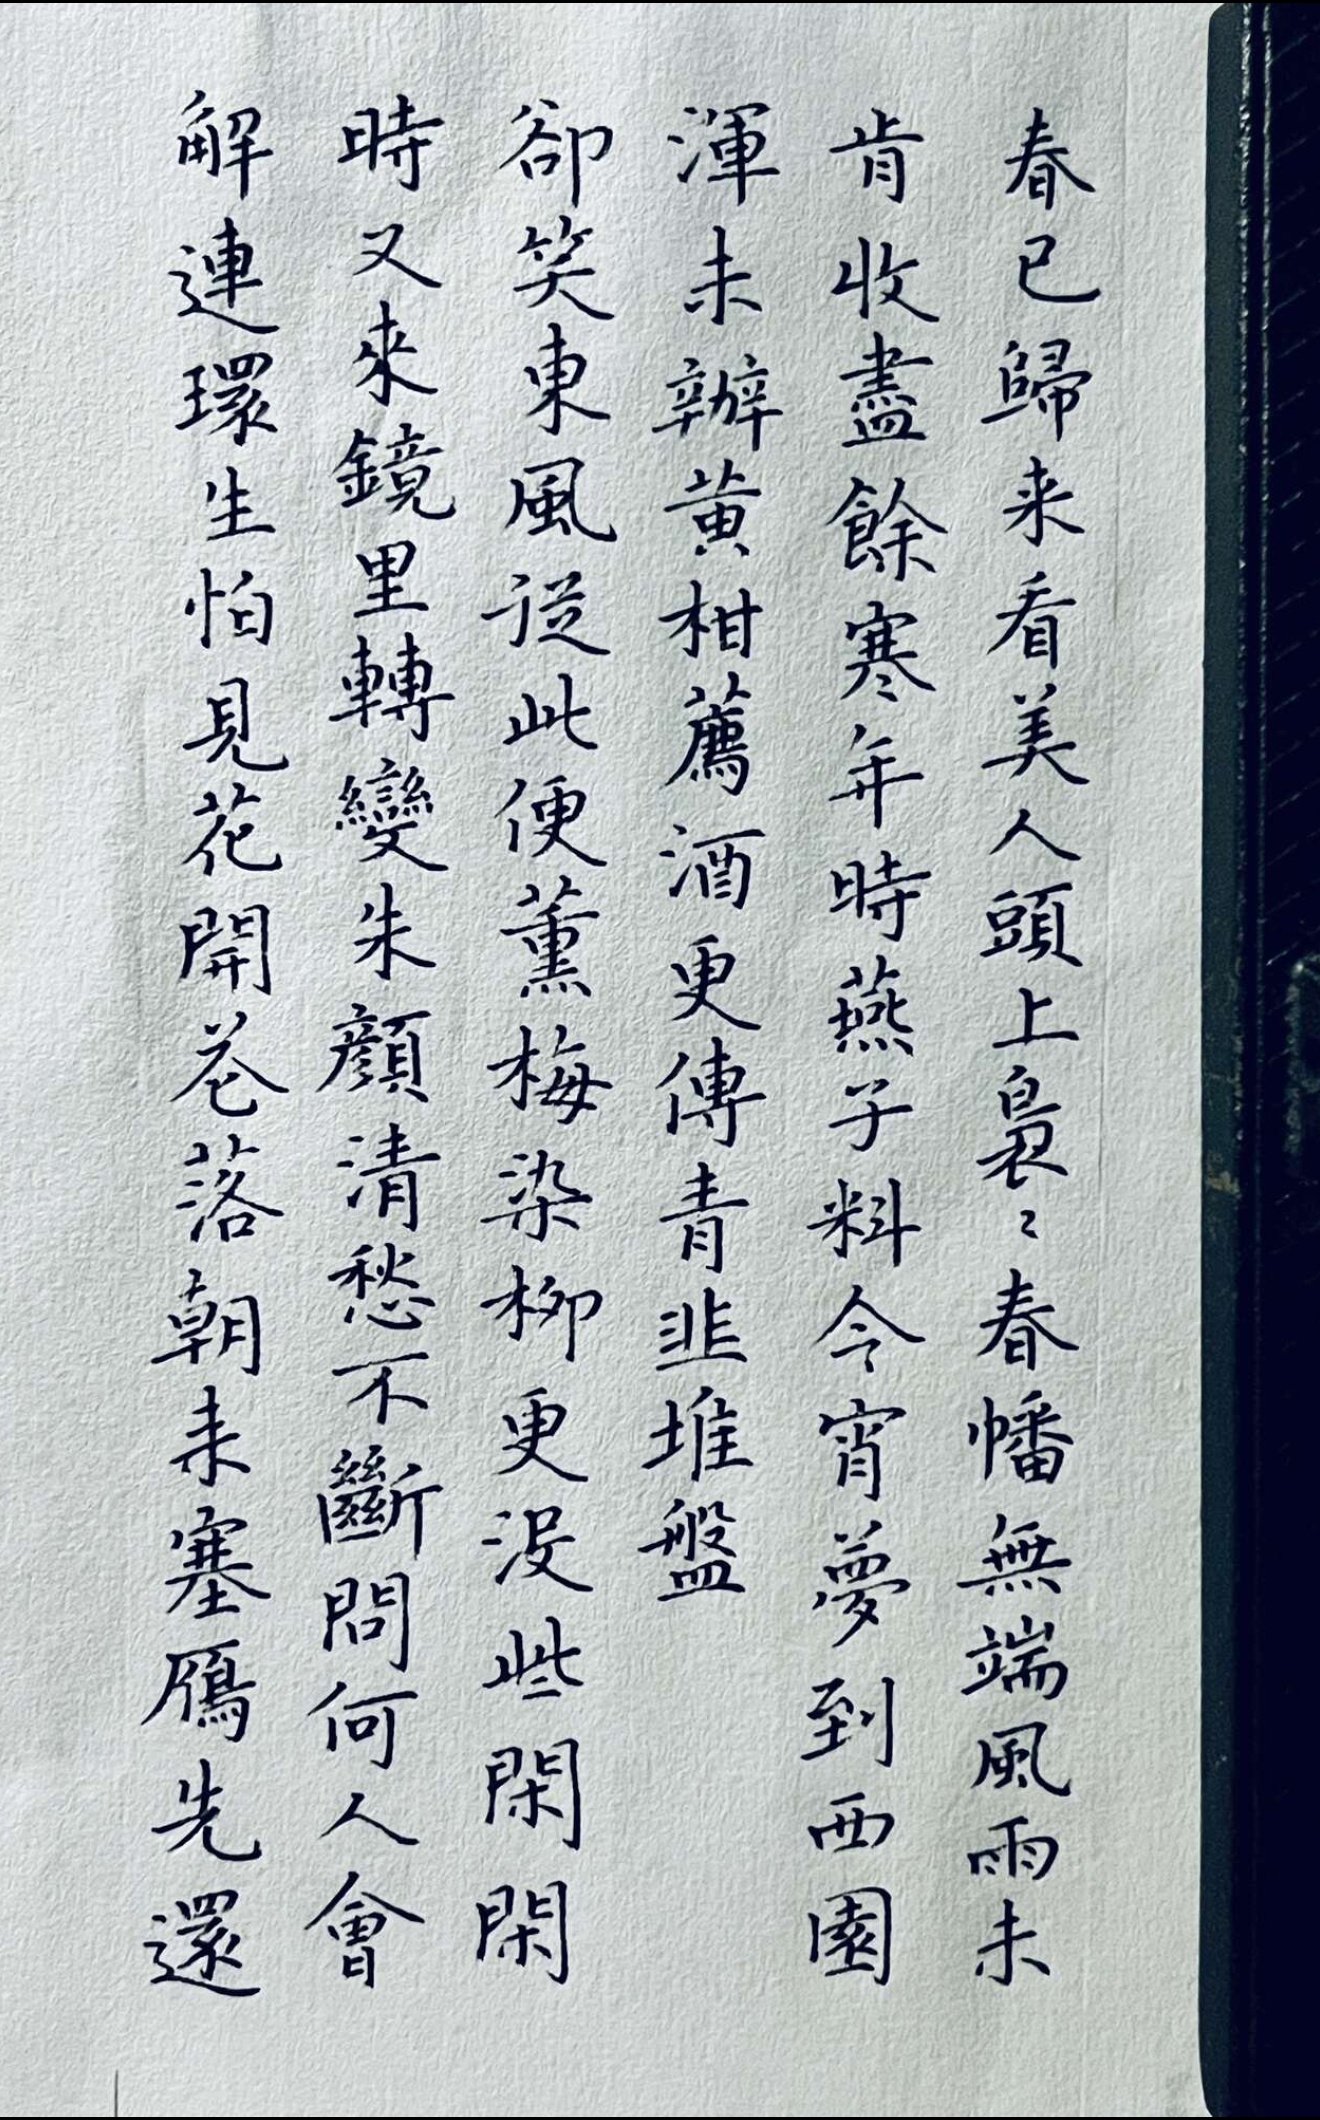 春已歸来看美人頭上裊〻春幡無端風雨未
肯收盡餘寒年時燕子料今宵夢到西園
渾未辦黄柑薦酒更傳青韭堆盤
卻笑東風從此便薰梅染柳更没些閑閑
時又來鏡里轉變朱顔清愁不斷問何人會
解連環生怕見花開花落朝来塞鴈先還